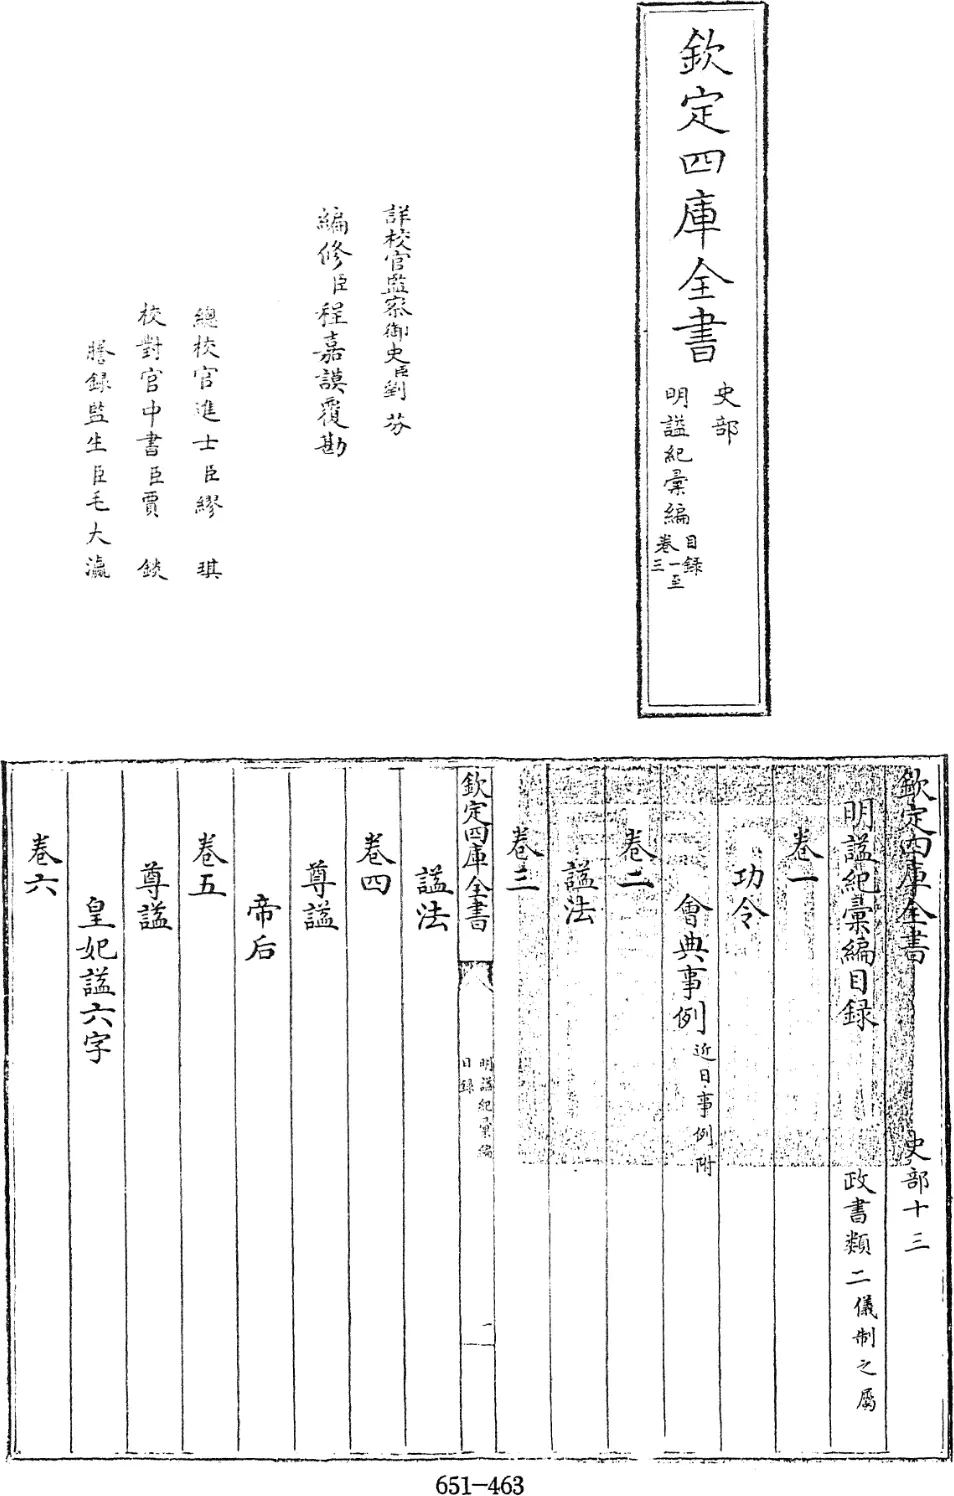 欽定四庫全書
史部
明諡紀彙編
目録
卷一至
三
詳校官監察御史臣劉芬
編修臣程嘉謨覆勘
總校官進士臣繆琪
校對官中書臣賈錟
謄録監生臣毛大瀛
欽定四庫全書 史部十三
明諡紀彙編目録 政書類二儀制之屬
卷一
功令
會典事例近日事例附
卷二
諡法
卷三
欽定四庫全書
明諡紀彙編
目録
一
諡法
卷四
尊諡
帝后
卷五
尊諡
皇妃諡六字
卷六
651-463